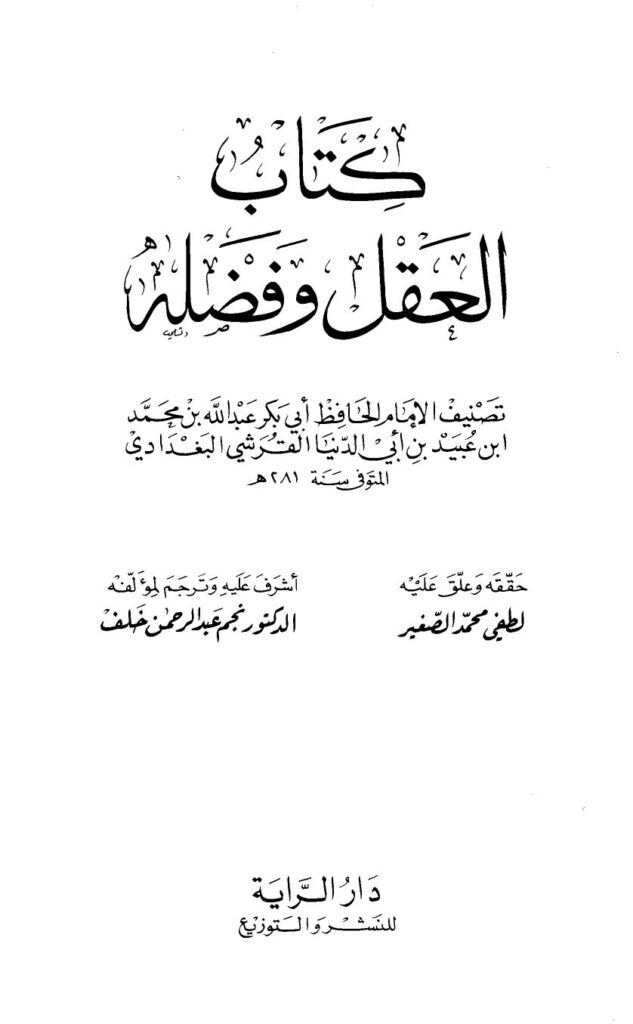 كِتَابُ
العَقْل وَفَضْلِهُ
تصنيف الإمام الحافظ أبي بكر عبد الله بن محمد
ابن عُبَيْد بن أبي الدّنيَا القُرَشي البَغْدَادي
المتوفى سَنَة ٢٨١ هـ
حَقّقَه وَعلّقَ عَليْه
لطفي محمّد الصّغير
أشرَفَ عَليَهِ وَتَرجَمَ لمؤلّفه
الدكتور نجم عبد الرحمٰن خلف
دَارُ الرَّايَة
للنشر والتوزيع